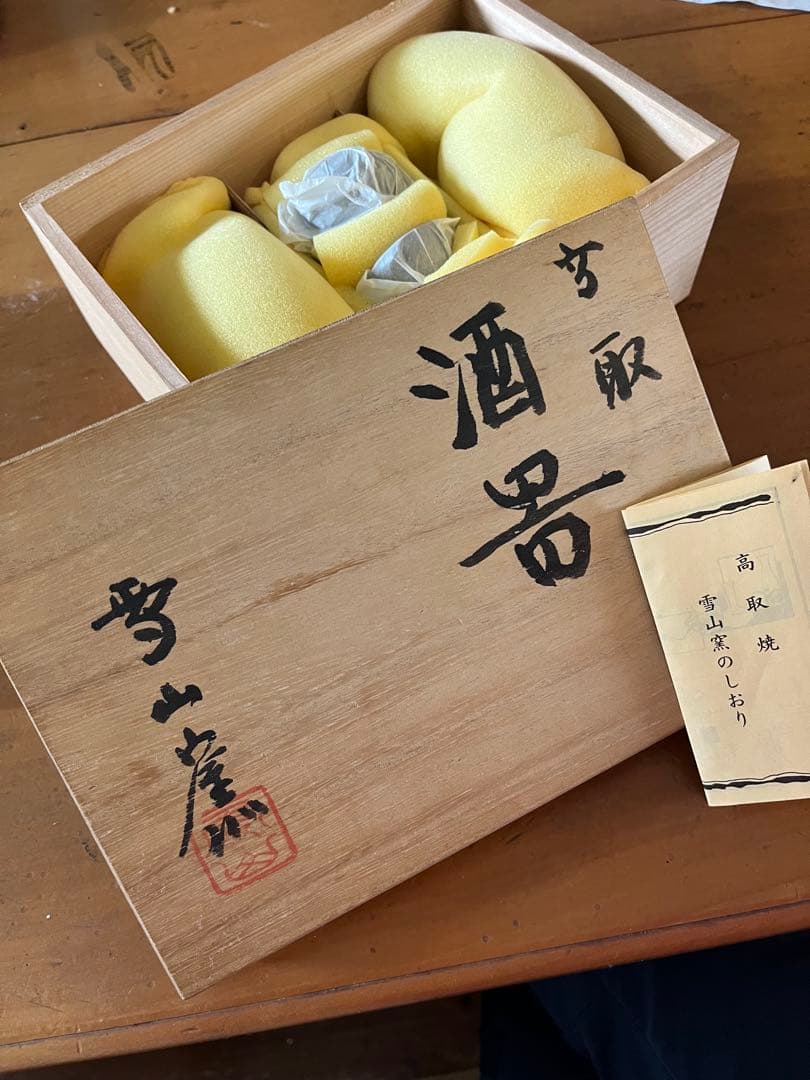 高取
酒器
雪山窯
高取焼
雪山窯のしおり